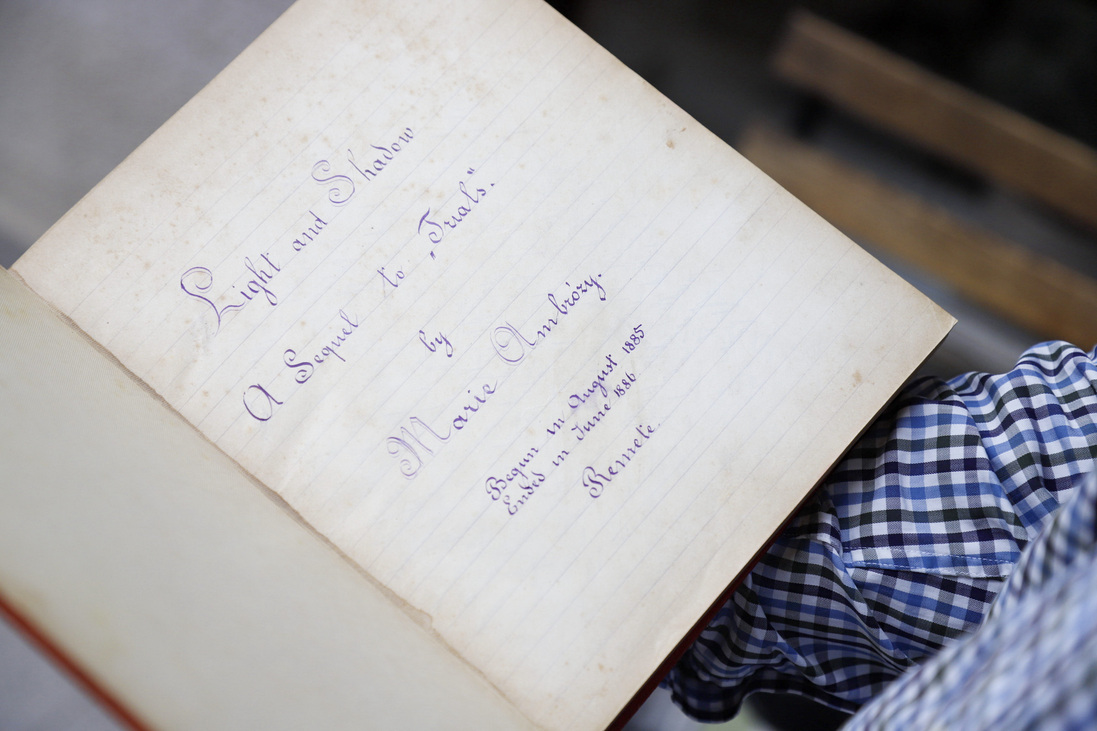 Light and Shadow
A Sequel to „Trials“.
by
Marie Ambrózy.
Begun in August 1885
Ended in June 1886
Remete.